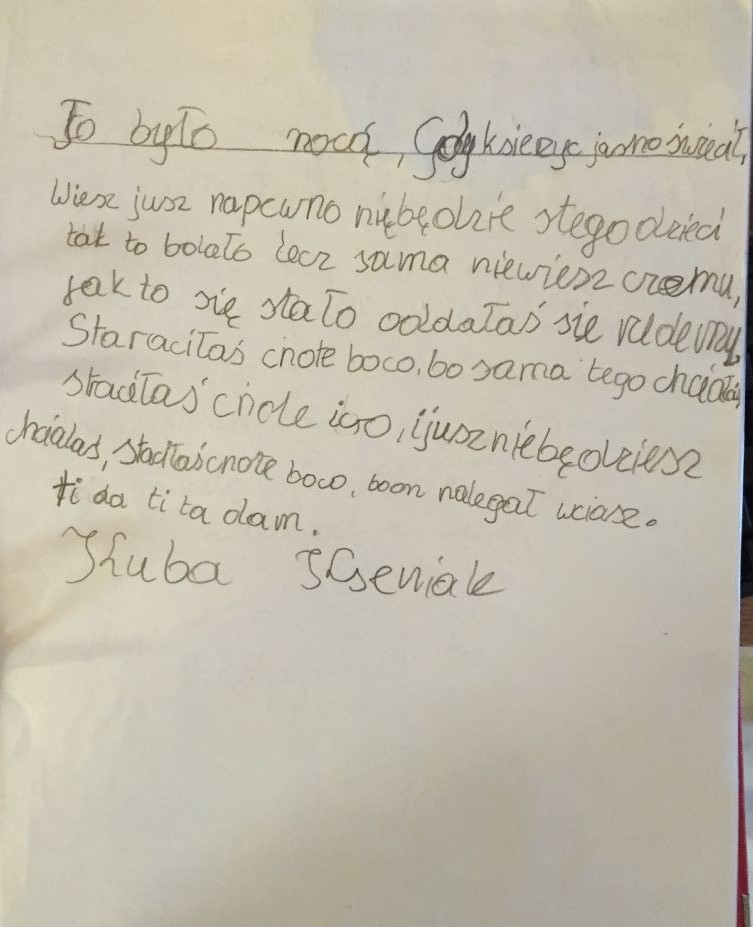 To było nocą, Gdy ksierzyc jasno świeał,
Wiesz jusz napewno niębędzie stego dzieci
tak to bolało lecz sama niewiesz czemu,
jak to się stało oddałaś sie
Staraciłaś cnote boco, bo sama tego chciałaś,
straciłaś cnote i co, i jusz niębędziesz
chciałaś, straciłaś cnote boco, boon nalegał wciasz.
ti da ti ta dam.
Kuba